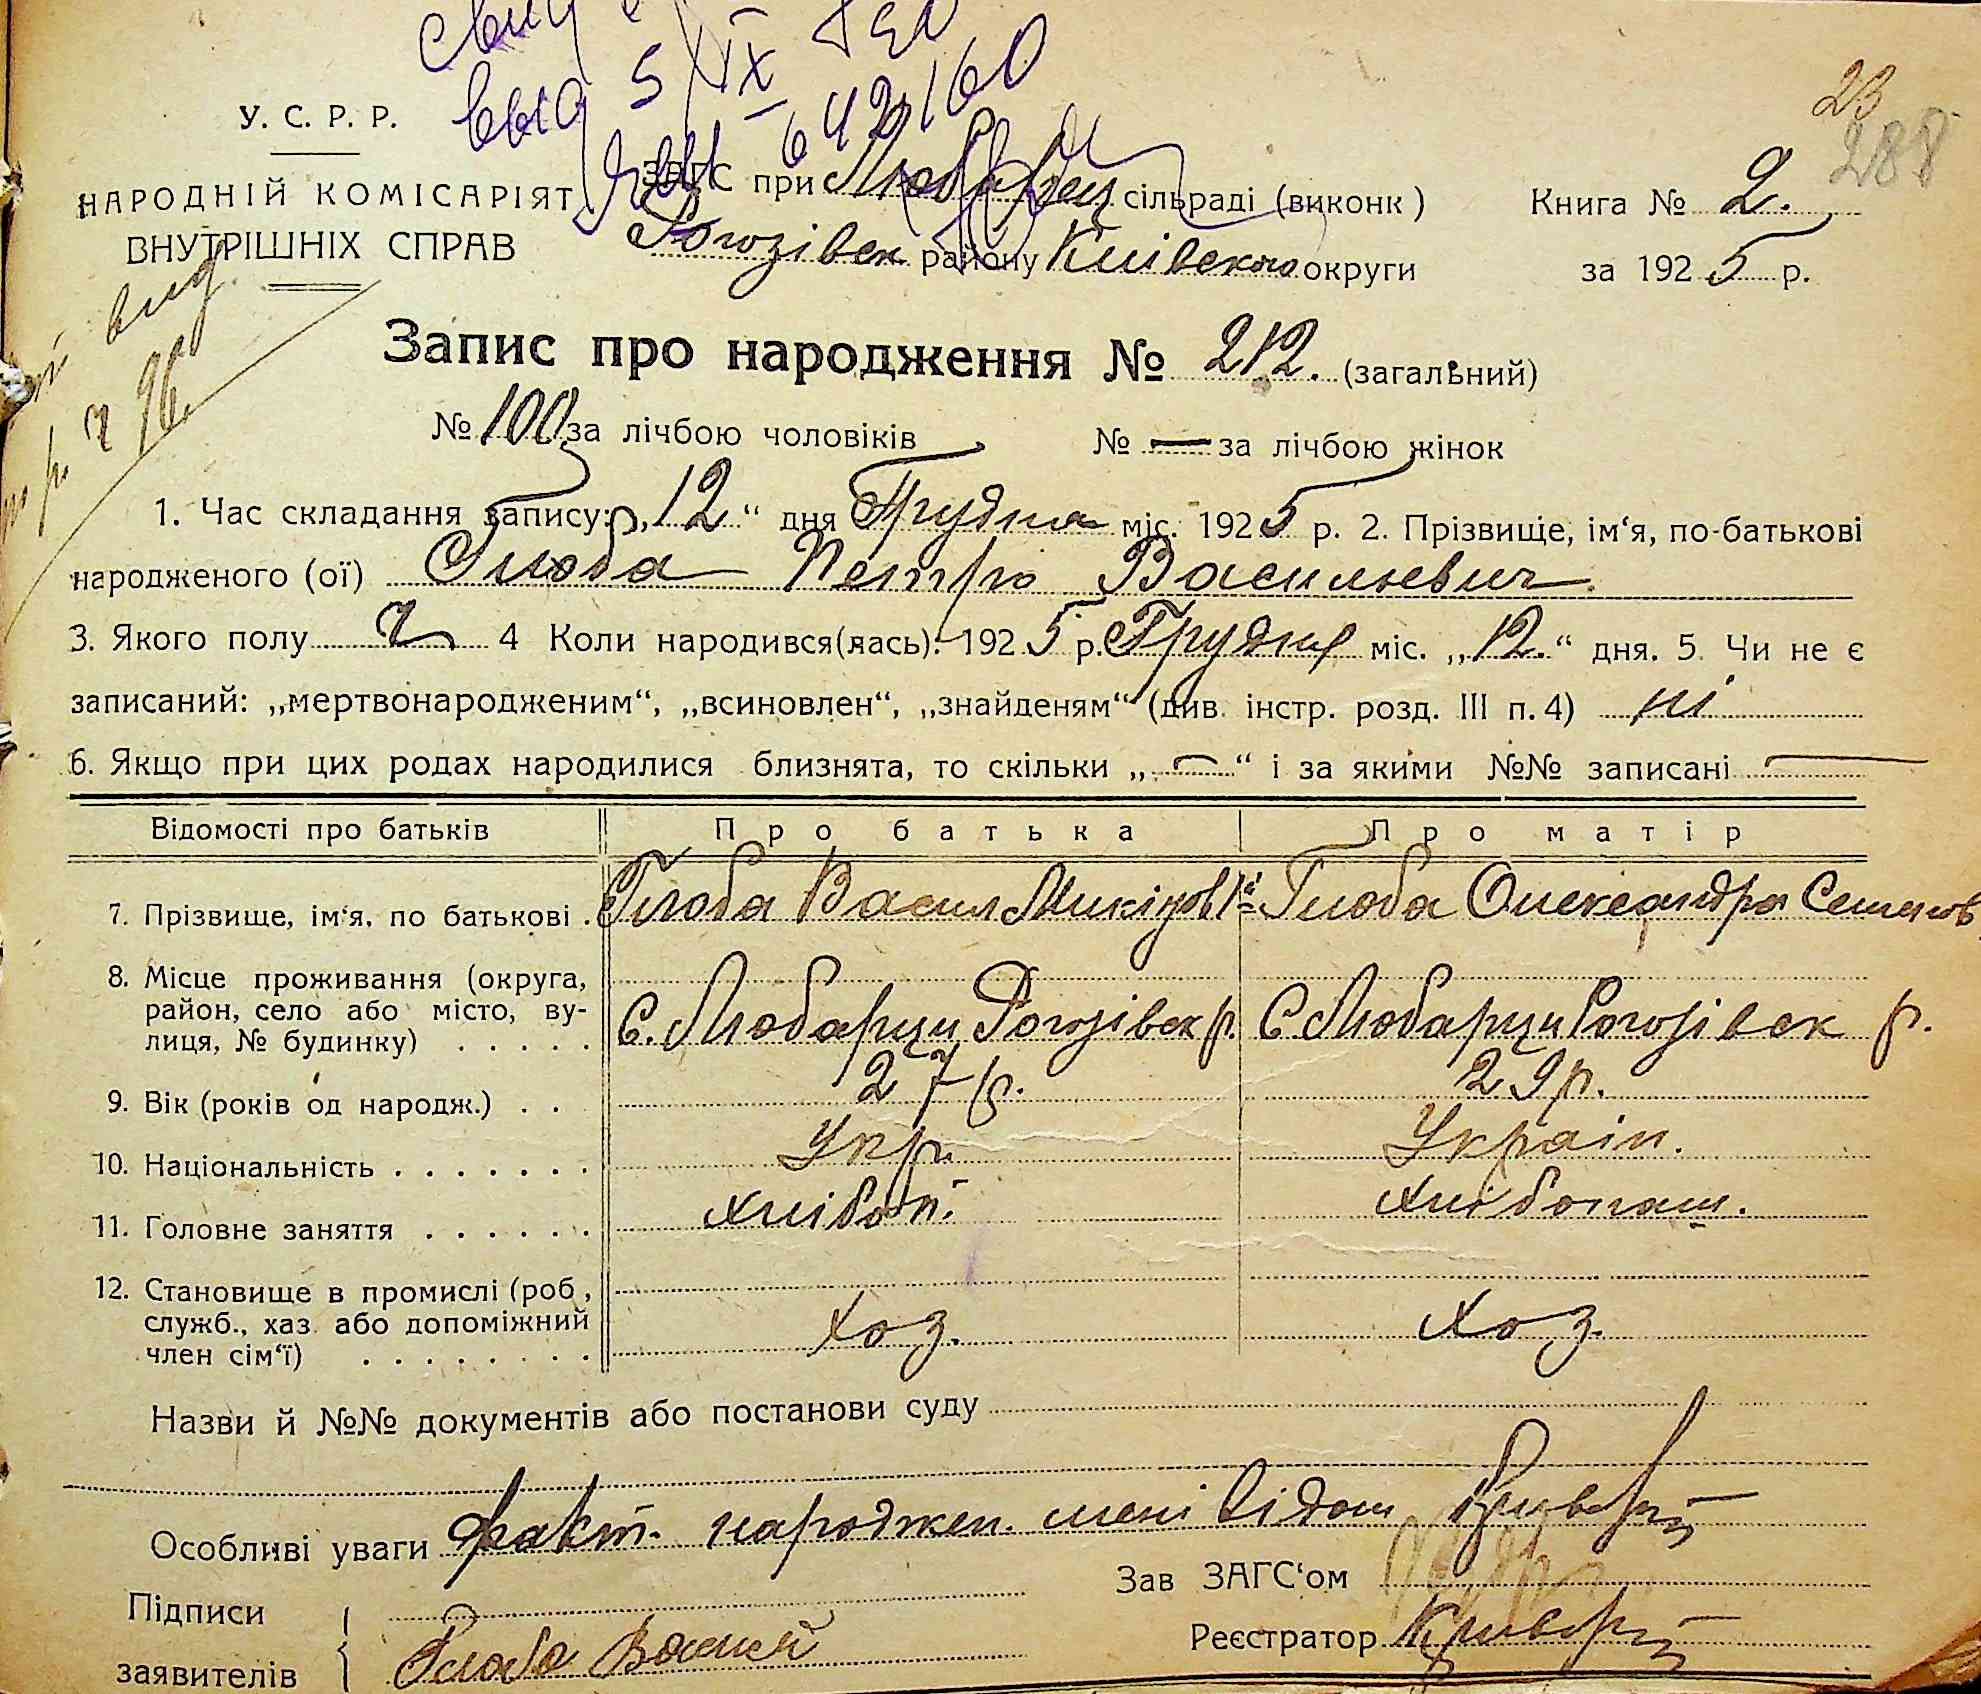 вид 5/IX
642160
23
288
У. С. Р. Р.
НАРОДНІЙ КОМІСАРІЯТ
ВНУТРІШНІХ СПРАВ
ЗАГС при Любарец сільраді (виконк)
Рогозівск району Київского округи
Книга № 2.
за 1925 р.
вид.
Запис про народження № 212. (загальний)
№ 100 за лічбою чоловіків № — за лічбою жінок
1. Час складання запису: „12“ дня Грудня міс. 1925 р. 2. Прізвище, ім‘я, по-батькові
народженого (ої) Глоба Петро Васильевич.
3. Якого полу ч 4 Коли народився(лась): 1925 р. Грудня міс. „12.“ дня. 5. Чи не є
записаний: „мертвонародженим“, „всиновлен“, „знайденям“ (див. інстр. розд. III п. 4) ні
6. Якщо при цих родах народилися близнята, то скільки „—“ і за якими №№ записані —
Відомості про батьків Про батька Про матір
7. Прізвище, ім‘я, по батькові . Глоба Васил Глоба Олександра Семенов
8. Місце проживання (округа,
район, село або місто, ву-
лиця, № будинку) . . . . . с. Любарци Рогозівск р. С. Любарци Рогозівск р.
9. Вік (років од народж.) . . 27 р. 29 р.
10. Національність . . . . . . . Укр. Украін.
11. Головне заняття . . . . . . хлібоп. хлібопаш.
12. Становище в промислі (роб.,
служб., хаз. або допоміжний
член сім‘ї) . . . . . . . . Хоз. Хоз.
Назви й №№ документів або постанови суду
Особливі уваги факт. народжен. мені відом
Зав ЗАГС‘ом
Підписи
заявителів Глоба Василь
Реєстратор